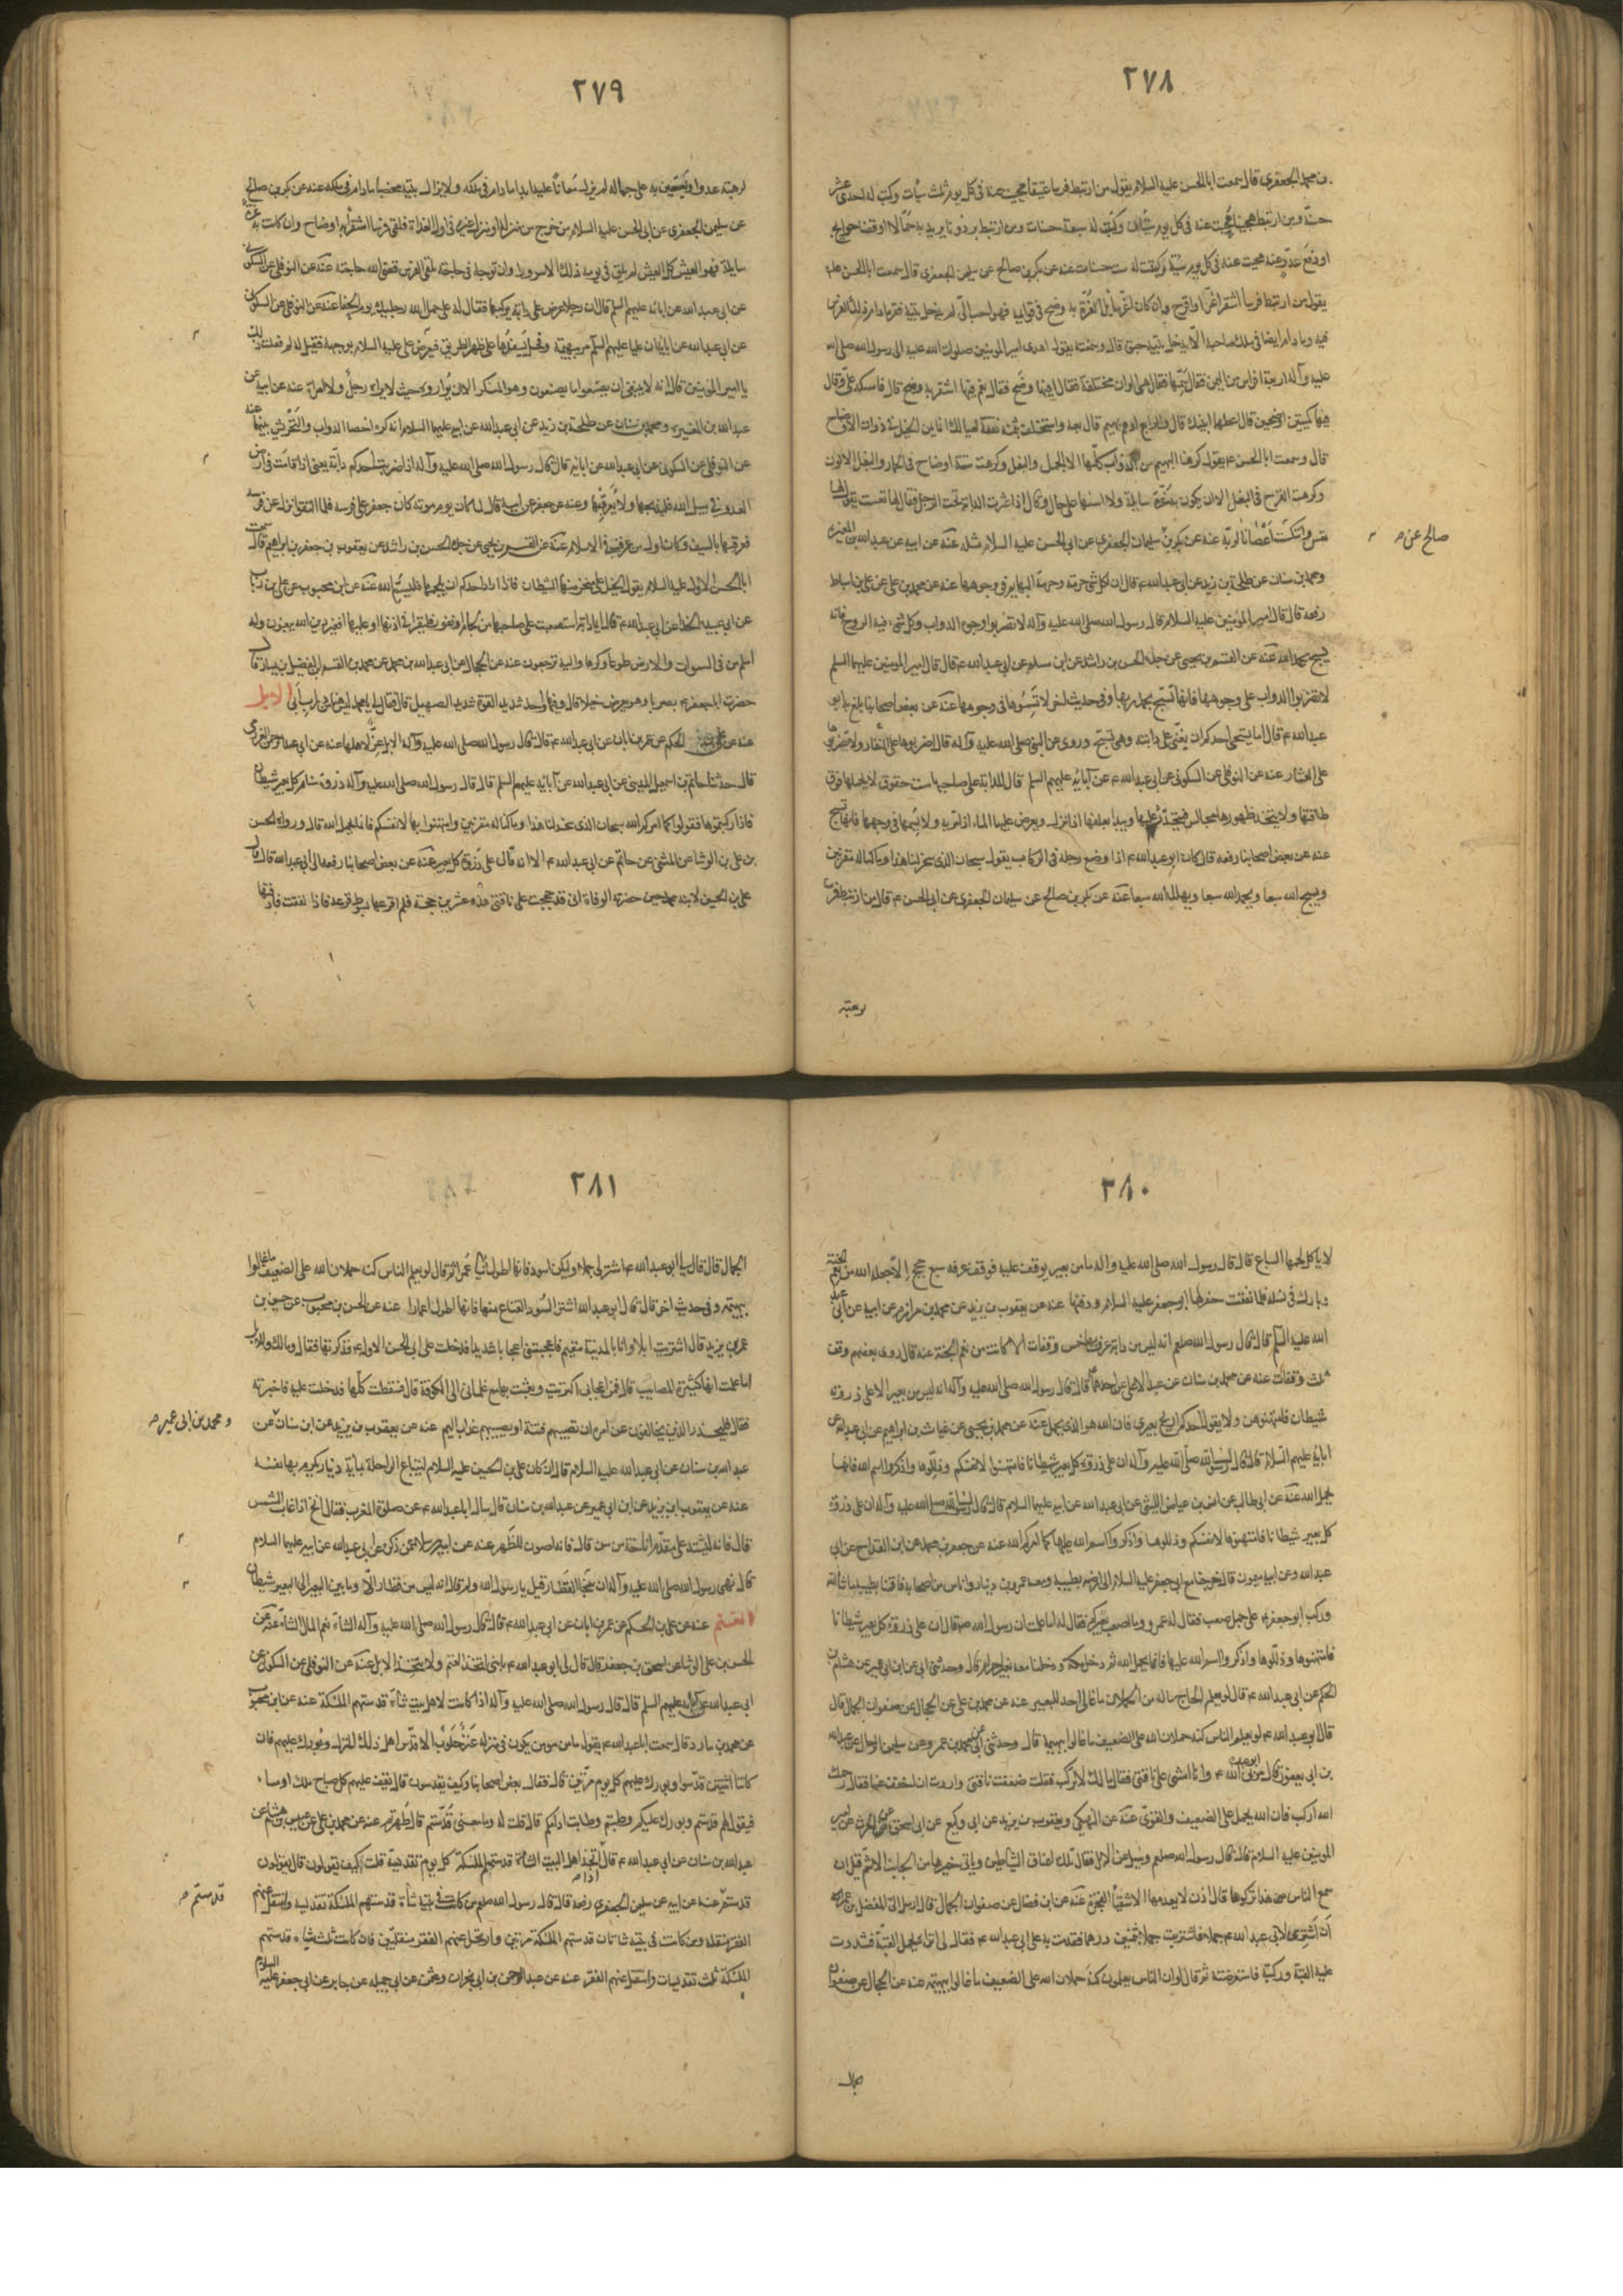 ٢٧٨
بن محمد الجعفرى قال سمعت ابا الحسن عليه السلام يقول من ارتبط فرسا عتيقا محيت عنه فى كل يوم ثلث سيأت وكتب له احدى عشر
حسنة ومن ارتبط هجينا محيت عنه فى كل يوم سيئتان وكتبت له سبعة حسنات ومن ارتبط برذونا يريد به جمالا او قضا حوايج
او دفع عدو عنه محيت عنه فى كل يوم سيئة وكتبت له ست حسنات عنه عن بكر بن صالح عن سليمن الجعفرى قال سمعت ابا الحسن عليه
يقول من ارتبط فرسا اشقر اغر او اقرح وان كان اغر سايل الغرة به وضح فى قوايمه فهو احب الى لم يدخل بيته فقر ما دام ذلك الفرس
فيه وما دام ايضا فى ملك صاحبه لا يدخل بيته حيف قال وسمعته يقول اهدى امير المومنين صلوات الله عليه الى رسول الله صلى الله
عليه وآله اربعة افراس من اليمن فقال سمها فقال هى الوان مختلفة فقال ايها وضح فقال نعم فيها اشقر به وضح قال فامسكه على وقال
فيها كميتين اوضحين قال اعطهما ابنيك قال والرابع ادهم بهيم قال بعه واستخلف ثمنه نفقة لعيالك انما يمن الخيل فى ذوات الاوضاح
قال وسمعت ابا الحسن ع يقول كرهنا البهيم من الدواب كلها الا الجمل والبغل وكرهت شية اوضاح فى الحمار والبغل الالوان
وكرهت القرح فى البغل الا ان يكون به غرة سايلة ولا اشتهيها على حال وقال اذا عثرت الدابة تحت الرجل فقال لها تعست تقول لها
تعس وانتكث اعصانا لربه عنه عن بكر بن سليمان الجعفرى عن ابى الحسن عليه السلام مثله عنه عن ابيه عن عبد الله بن المغيرة
صالح عن صح
ومحمد بن سنان عن طلحة بن زيد عن ابى عبد الله ع قال ان لكل شى حرمة وحرمة البهايم فى وجوهها عنه عن محمد بن على عن على بن اسباط
رفعه قال قال امير المؤمنين عليه السلام قال رسول الله صلى الله عليه وآله لا تضربوا وجوه الدواب وكل شىء فيه الروح فانه
يسبح بحمد الله عنه عن القسم بن يحيى عن جده الحسن بن راشد عن ابن مسلم عن ابى عبد الله ع قال قال امير المومنين عليه السلم
لا تضربوا الدواب على وجوهها فانها تسبح بحمد ربها وفى حديث اخر لا تسموها فى وجوهها عنه عن بعض اصحابنا بلغ به ابو
عبد الله ع قال اما يستحى احدكم ان يغنى على دابته وهى تسبح وروى عن النبى صلى الله عليه وآله قال اضربوها على النفار ولا تضربوها
على العثار عنه عن النوفلى عن السكونى عن ابى عبد الله ع عن آبائه عليهم السلم قال للدابة على صاحبها ست حقوق لا يحملها فوق
طاقتها ولا يتخذ ظهورها مجالس فيتحدث عليها ويبدأ بعلفها اذا نزل ويعرض عليها الماء اذا مر به ولا يسمها فى وجهها فانها تسبح
عنه عن بعض اصحابنا رفعه قال كان ابو عبد الله ع اذا وضع رجله فى الركاب يقول سبحان الذى سخر لنا هذا وما كنا له مقرنين
ويسبح الله سبعا ويحمد الله سبعا ويهلل الله سبعا عنه عن بكر بن صالح عن سليمان الجعفرى عن ابى الحسن ع قال من ارتبط فرسا
لرهبة
٢٧٩
لرهبة عدو او يستعين به على جماله لم يزل معانا عليه ابدا ما دام فى ملكه ولا يزال بيته مخصبا ما دام فى ملكه عنه عن بكر بن صالح
عن سليمن الجعفرى عن ابى الحسن عليه السلام من خرج من منزله او منزل غيره فى اول الغداة فلقى فرسا اشقر به اوضاح وان كانت به غرة
سايلة فهو العيش كل العيش لم يلق فى يومه ذلك الا سرورا وان توجه فى حاجته فلقى الفرس قضى الله حاجته عنه عن النوفلى عن السكونى
عن ابى عبد الله عن ابائه عليهم السلم قال ان رجلا عرض على دابة يوكبها فقال له على حمل الله رجليك يوم الحفا عنه عن النوفلى عن السكونى
عن ابى عبد الله عن ابائه ان عليا عليهم السلم مر ببهيمة وفحل يسفدها على ظهر الطريق فعرض على عليه السلام بوجهه فقيل له لم فعلت ذلك
يا امير المومنين قال انه لا ينبغى ان يصنعوا ما يصنعون وهو المنكر الا ان يواروه حيث لا يراه رجل ولا امراة عنه عن ابيه عن
عبد الله بن المغيرة ومحمد بن سنان عن طلحة بن زيد عن ابى عبد الله عن ابيه عليهما السلام انه كره اخصا الدواب والتحريش بينها عنه
عن النوفلى عن السكونى عن ابى عبد الله عن ابائه قال قال رسول الله صلى الله عليه وآله اذا خربت لاحدكم دابة يعنى اذا قامت فى ارض
العدو فى سبيل الله فليذبحها ولا يعرقبها وعنه عن جعفر عن ابيه قال لما كان يوم موته كان جعفر على فرسه فلما التقوا نزل عن فرسه
فعرقبها بالسيف وكان اول من عرقب فى الاسلام عنه عن القسم بن يحيى عن جده الحسن بن راشد عن يعقوب بن جعفر بن ابراهيم قال سمعت
ابا الحسن الاول عليه السلام يقول الخيل على كل منخر منها شيطان فاذا اراد احدكم ان يلجمها فليسم الله عنه عن ابن محبوب عن على بن رئاب
عن ابى عبيدة الحذا عن ابى عبد الله ع قال ايما دابة استصعبت على صاحبها من لجام او نفور فليقرا فى اذنها او عليها افغير دين الله يبغون وله
اسلم من فى السموات والارض طوعا وكرها واليه ترجعون عنه عن الحجال عن ابى عبد الله بن محمد عن محمد بن القسم بن الفضيل بن يسار قال
حضرت ابا جعفر ع بصريا وهو يعرض خيلا قال وفيها واحد شديد القوة شديد الصهيل قال فقال لى يا محمد ليس هذا من دواب ابى الابل
عنه عن على بن الحكم عن عمر بن ابان عن ابى عبد الله ع قال قال رسول الله صلى الله عليه وآله الابل عز لاهلها عنه عن ابى عبد الله
قال حدثنا حاتم بن اسمعيل المدينى عن ابى عبد الله عن آبائه عليهم السلم قال قال رسول الله صلى الله عليه وآله ذروة سنام كل بعير شيطان
فاذا ركبتموها فقولوا كما امركم الله سبحان الذى سخر لنا هذا وما كنا له مقرنين وامتهنوا بها لانفسكم فانما يحمل الله قال ورواه الحسن
بن على بن الوشا عن المثنى عن حاتم عن ابى عبد الله ع الا انه قال على ذروة كل بعير عنه عن بعض اصحابنا رفعه الى ابى عبد الله قال قال
على بن الحسين لابنه محمد حين حضرته الوفاة انى قد حججت على ناقتى هذه عشرين حجة فلم اقرعها بسوط قرعة فاذا نفقت فادفنها
٢٨٠
لا ياكل لحمها السباع قال قال رسول الله صلى الله عليه واله ما من بعير يوقف عليه موقف عرفه سبع حجج الا جعله الله من نعم الجنة
وبارك فى نسله فلما نفقت حفر لها ابو جعفر عليه السلام ودفنها عنه عن يعقوب بن يزيد عن محمد بن مرازم عن ابيه عن ابى عبد
الله عليه السلم قال قال رسول الله صلعم انه ليس من دابة عرف بها خمس وقفات الا كانت من نعم الجنة عنه قال روى بعضهم وقف
ثلث وقفات عنه عن محمد بن سنان عن عبد الاعلى عن احدهما قال قال رسول الله صلى الله عليه وآله انه ليس من بعير الا على ذروته
شيطان فامتهنوهن ولا يقول احدكم اريح بعيرى فان الله هو الذى يحمل عنه عن محمد بن يحيى عن غياث بن ابراهيم عن ابى عبد الله عن
ابائه عليهم السلام قال قال رسول الله صلى الله عليه وآله ان على ذروة كل بعير شيطانا فامتهنوا لانفسكم وذللوها واذكروا اسم الله فانما
يحمل الله عنه عن ابى طالب عن انس بن عياض الليثى عن ابى عبد الله عن ابيه عليهما السلام قال قال رسول الله صلى الله عليه وآله ان على ذروة
كل بعير شيطانا فامتهنوها لانفسكم وذللوها واذكروا اسم الله عليها كما امركم الله عنه عن جعفر بن محمد عن ابن القداح عن ابى
عبد الله وعن ابيه ميمون قال خرجنا مع ابى جعفر عليه السلام الى ارض بطيبة ومعه عمرو بن دينار واناس من اصحابه فاقمنا بطيبة ما شا الله
وركب ابو جعفر ع على جمل صعب فقال له عمرو ما اصعب بعيركم فقال له اما علمت ان رسول الله ص قال ان على ذروة كل بعير شيطانا
فامتهنوها وذللوها واذكروا اسم الله عليها فانما يحمل الله ثم دخل مكة ودخلنا معه بغير احرام قال وحدثنى ابى عن ابن ابى عمير عن هشام بن
الحكم عن ابى عبد الله ع قال لو يعلم الحاج ما له من الحملان ما غالى احد للبعير عنه عن محمد بن على عن الحجال عن صفوان الجمال قال
قال ابو عبد الله ع لو يعلم الناس كنه حملان الله على الضعيف ما غالوا ببهيمة قال وحدثنى ابى عن محمد بن عمرو عن سليمن الرحال عن عبد الله
بن ابى يعفور قال مر بى ابو عبد الله ع وانا امشى على ناقتى فقال ما لك لا تركب فقلت ضعفت ناقتى واردت ان اخفف عنها فقال رحمك
الله اركب فان الله يحمل على الضعيف والقوى عنه عن النهيكى ويعقوب بن يزيد عن ابى وكيع عن ابى اسحق عن الحرث عن امير
المومنين عليه السلام قال قال رسول الله صلعم وسئل عن الابل فقال تلك اعناق الشياطين وياتى خيرها من الجانب الاشم قيل ان
سمع الناس هذا تركوها قال اذن لا يعدمها الاشقيا الفجرة عنه عن ابن فضال عن صفوان الجمال قال ارسل الى المفضل بن عمر
ان اشترى لابى عبد الله ع جملا فاشتريت جملا بثمنين درهما فقدمت به على ابى عبد الله ع فقال لى اتراه يحمل القبة فشددت
عليه القبة وركبته فاستعرضته ثم قال لو ان الناس يعلمون كنه حملان الله على الضعيف ما غالوا ببهيمة عنه عن الحجال عن صفوان
الجمال
٢٨١
الجمال قال قال لى ابو عبد الله ع اشتر لى جملا وليكن اسود فانها اطول شى اعمارا ثم قال لو يعلم الناس كنه حملان الله على الضعيف ما غالوا
ببهيمة وفى حديث اخر قال قال ابو عبد الله اشتر السود القباح منها فانها اطول اعمارا عنه عن الحسن بن محبوب عن حسين بن
عمر بن يزيد قال اشتريت ابلا وانا بالمدينة مقيم فاعجبتنى اعجابا شديدا فدخلت على ابى الحسن الاول ع فذكرتها فقال وما لك وللابل
اما علمت انها كثيرة المصايب قال فمن اعجابى اكريتها وبعثت بها مع غلمانى الى الكوفة قال فسقطت كلها فدخلت عليه فاخبرته
فقال فليحذر الذين يخالفون عن امره ان تصيبهم فتنة او يصيبهم عذاب اليم عنه عن يعقوب بن يزيد عن ابن سنان عن
ومحمد بن ابى عمير صح
عبد الله بن سنان عن ابى عبد الله عليه السلام قال ان كان على بن الحسين عليه السلام ليبتاع الراحلة بماية دينار يكرم بها نفسه
عنه عن يعقوب ابن يزيد عن ابن ابى عمير عن عبد الله بن سنان قال سال ابا عبد الله ع عن صلوة المغرب فقال انخ اذا غاب الشمس
قال فانه ليشتد على القيام اناخة من سن قال فانه اصون للظهر عنه عن ابيه مرسلا عمن ذكره عن ابى عبد الله عن ابيه عليهما السلام
قال نهى رسول الله صلى الله عليه وآله ان يتخطى القطار قيل يا رسول الله ولم قال لانه ليس من قطار الا وما بين البعير الى البعير شيطان
الغنم عنه عن على بن الحكم عن عمر بن ابان عن ابى عبد الله ع قال قال رسول الله صلى الله عليه وآله الشاة نعم المال الشاة عنه عن
الحسن بن على الوشا عن اسحق بن جعفر قال قال لى ابو عبد الله ع يا بنى اتخذ الغنم ولا تتخذ الابل عنه عن النوفلى عن السكونى عن
ابى عبد الله عن آبائه عليهم السلم قال قال رسول الله صلى الله عليه وآله اذا كانت لاهل بيت شاة قدستهم الملئكة عنه عن ابن محبوب
عن محمد بن مارد قال سمعت ابا عبد الله ع يقول ما من مومن يكون فى منزله عنز حلوب الا قدس اهل ذلك المنزل وبورك عليهم فان
كانتا اثنتين قدسوا وبورك عليهم كل يوم مرتين قال فقال بعض اصحابنا وكيف يقدسون قال يقف عليهم كل صباح ملك او مساء
فيقول لهم قدستم وبورك عليكم وطبتم وطاب ادامكم قال قلت له وما معنى قدستم قال طهرتم عنه عن محمد بن على عن عبيس بن هشام عن
عبد الله بن سنان عن ابى عبد الله ع قال اذا اتخذ اهل البيت الشاة قدستهم الملئكة كل يوم تقديسة قلت كيف يقولون قال يقولون
قدستم عنه عن ابيه عن سليمن الجعفرى رفعه قال قال رسول الله صلعم من كانت فى بيته شاة قدستهم الملئكة تقديسة وانتقل عنهم
قدستم صح
الفقر منقلة ومن كانت فى بيته شاتان قدستهم الملئكة مرتين وارتحل عنهم الفقر منقلتين فان كانت ثلث شياه قدستهم
الملئكة ثلث تقديسات وانتقل عنهم الفقر عنه عن عبد الرحمن بن ابى نجران وعثمن عن ابى جميلة عن جابر عن ابى جعفر عليه السلام